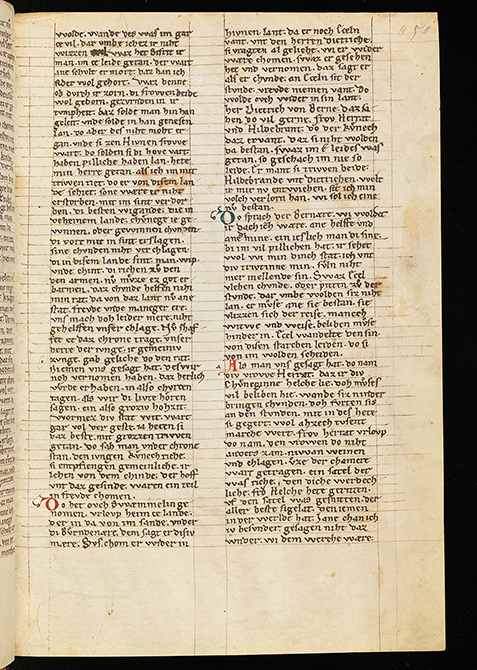 wolde. wande des was im gar
ze vil. dar umbe iches ir niht
wizzen wil. waz het disiv ir
man. im ze leide getan. der wart
ane schvlt ermort. daz han ich
sider wol gehort. waz denne
ob dvrh ir zorn. di frowen beide
wol geborn. gezvrnden in ir
tvmpheit. daz solde man hin han
geleit. vnde solde in han genesen
lan. do aber des niht moht er
gan. vnde si zen Hivnen frowe
wart. do solden si di hove vart
haben pilliche haben lan. hete
min herre getan. als ich im mit
triwen riet. do er von disen lan
de schiet. sone wære er niht
erstorben. mit im sint verdor
ben. di besten wigande. di in
deheinem lande. chvnege ie ge
wnnen. oder gewinnen chvnden
di voit mir in sint erslagen.
sine chvnden niht verchlagen.
di in disem lande sint. man. wip
vnde chint. di richen zv den
den armen. nv mvze ez got er
barmen. daz chvnde helfen niht
min rat. da von daz lant nv ane
stat. frevde vnde maneger ere.
vns mach doh leider mere. niht
gehelfen vnser chlage. Nv schaf
fet ez daz chrone trage. vnser
herre der ivnge. ir gemeiniv
zvnge. gab geliche do den rat.
Niemen vns gesagt hat. des wir
noh vernomen haben. daz herlich
wrde erhaben. in also chvrcen
tagen. als wir di livte hören
sagen. ein also groziv hohzit.
wormez div stat wite. wart
gar vol der geste. sa heten si
daz beste. mit grozzen triwen
getan. do sah man vnder chrone
stan. den ivngen kvnech riche.
si empfiengen gemeinliche. ir
lehen von dem chinde. der hoff
vnt daz gesinde. waren ein teil
in frevde chomen.
Do het ovch Swæmmelinge
nomen. vrlovp heim ze lande.
der in da von im sande. vnder
di Bvrgendære. dem sagt er disiv
mære. Svs chom er wider in
hivnen lant. da er noch Eceln
vant. vnt den herren dietriche.
si vragten al geliche. wi er wider
wære chomen. swaz er gesehen
het vnd vernomen. daz sagt er
als er chvnde. an Eceln sit der
stvnde. vrevde niemen vant. do
wolde ovh wider in sin lant.
her Dietrich von Berne. daz sa
hen do vil gerne. frov Herrat
vnd Hildebrant. do der kvnech
daz ervant. daz si niht wolden
da bestan. swaz im e leides was
getan. so geschach im nie so
leide. Er mant si triwen beide.
Hildebrande vnt Dietrichen. welt
ir mir nv entwichen. sit ich min
volch verlorn han. wi sol ich eine
nv bestan.
Do sprach der Bernære. wi woldet
ir daz ich wære. ane helffe vnd
ane mine. ein ieslich man di sine.
di im vil pillichen hat. ir sehet
wol wi min dinch stat. ich vnt
div trivtinne min. svln niht
mer mellende sin. Swaz Ecel
vlehen chvnde. oder piten zv der
stvnde. dar vmbe wolden sir niht
lan. er mvse ane sie bestan. sie
vlizzen sich der reise. manech
witwe vnd weise. beliben mvse
hinder in. Ecel wandelte den sin.
von disen starchen leiden. do si
von im wolden scheiden.
Als man vns gesagt hat. do nam
div vrowe Herrat. daz ir div
chvneginne Helche lie. doh mvses
vil beliben hie. wande sis ninder
bringen chvnden. doh furten sis
an den stvnden. mit in des hete
si gegert. wol ahzech tvsent
marche wert. frov herrat vrlovp
do nam. den vrowen do niht
anders zam. niwan weinen
vnd chlagen. vze der chamere
wart getragen. ein satel der
was riche. den diche werdech
liche. frov Helche hete geriten.
vf den satel was gesniten. der
aller beste sigelat. den iemen
in der werlde hat. Iane chan ich
iv besvnder gesagen niht daz
wnder. wi dem werche wære.